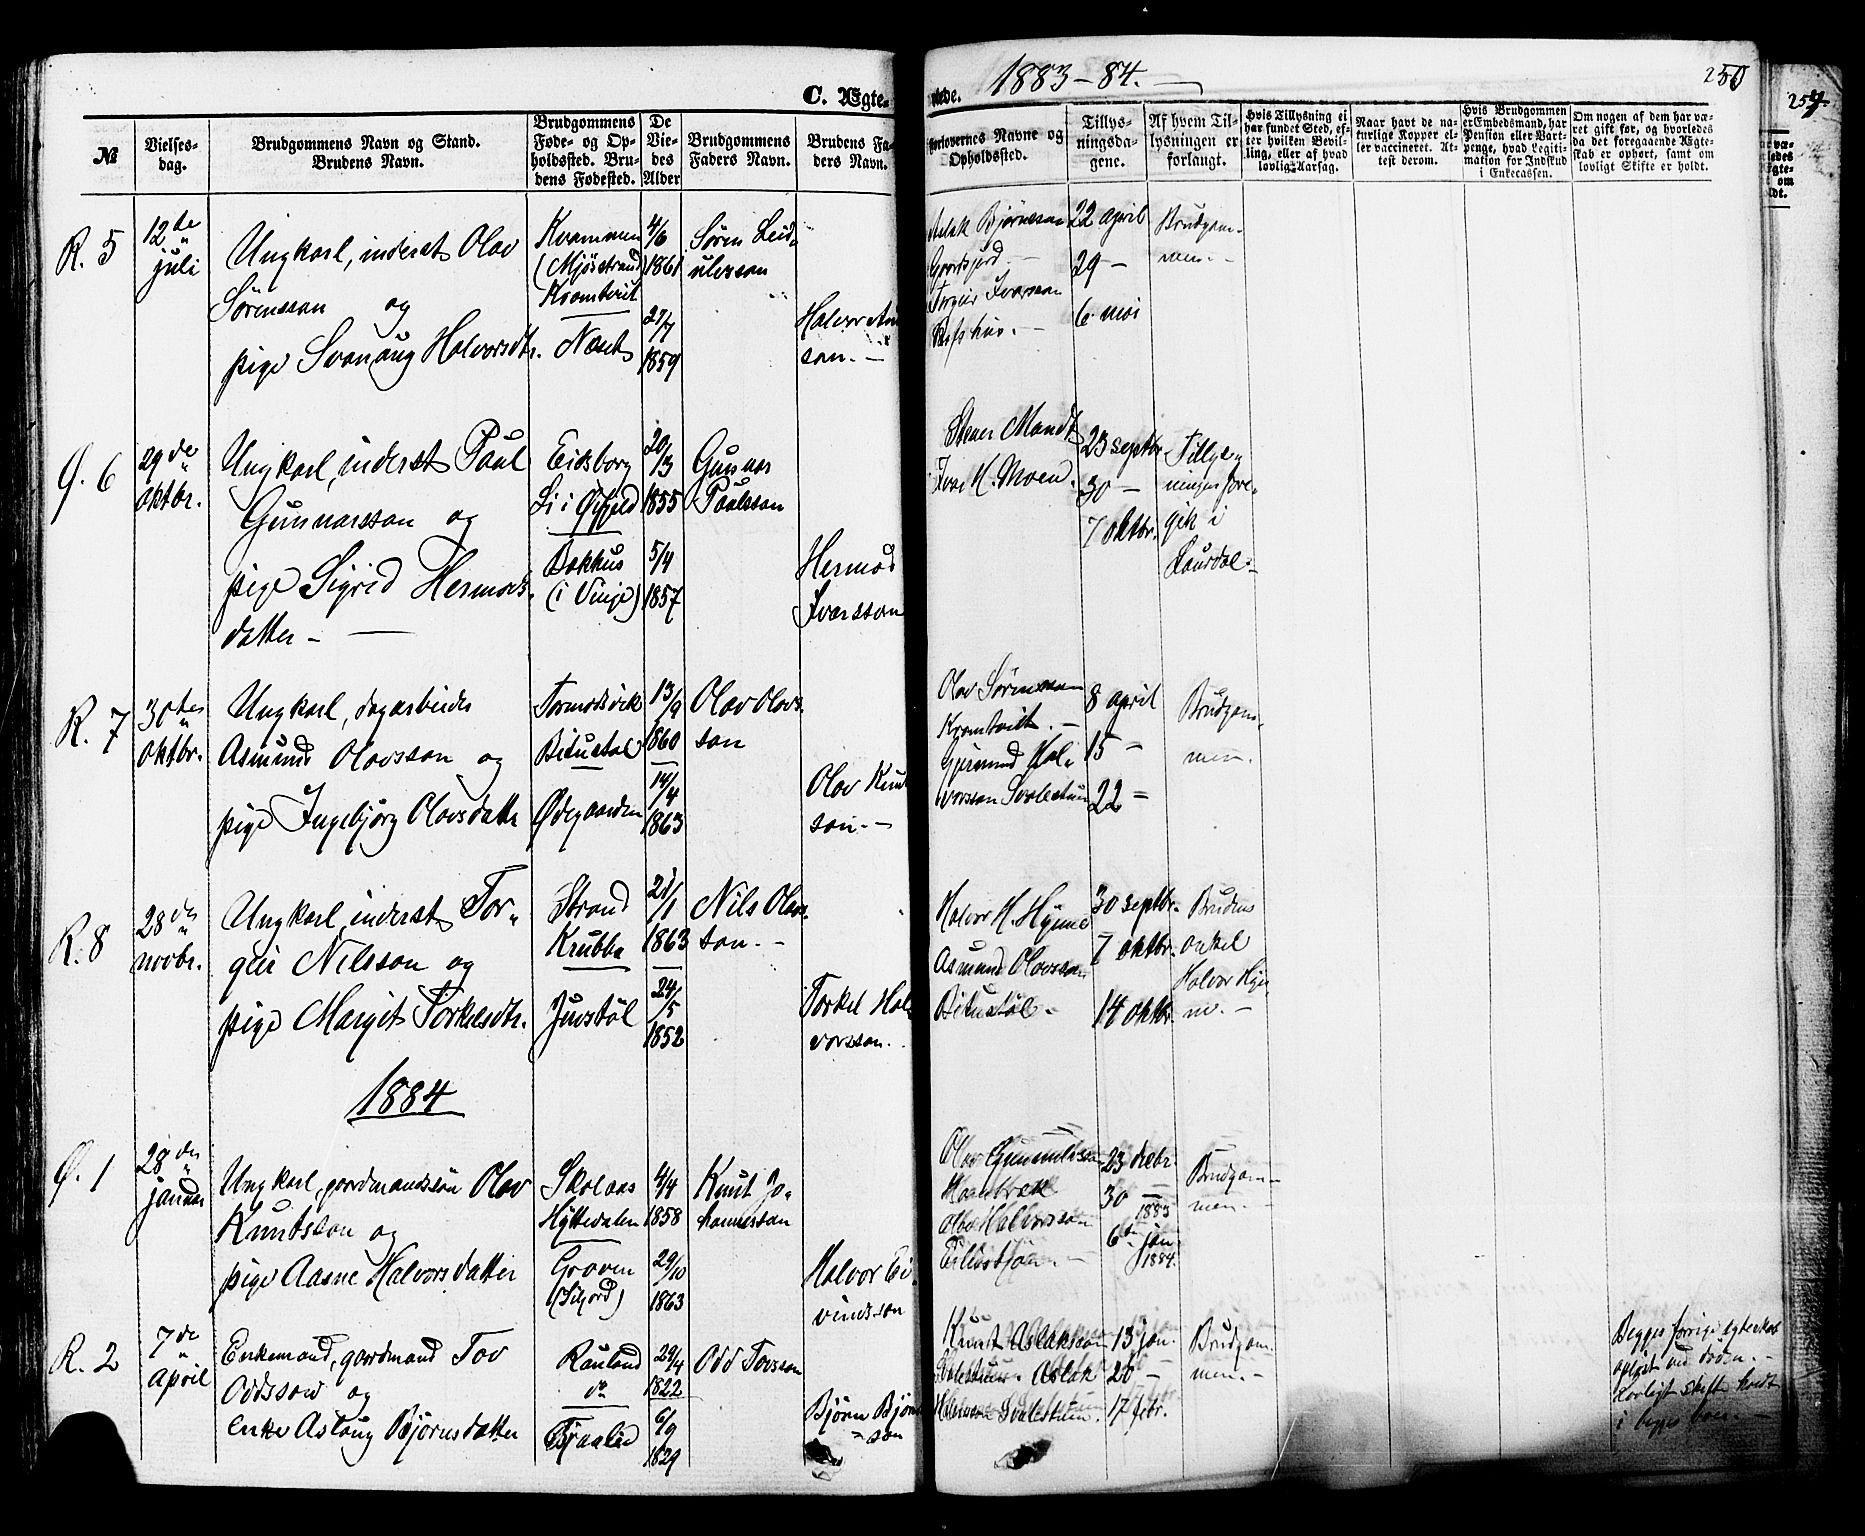 C. Ægte-
viede.
1883-84.
250
257
№
Vielses-
dag.
Brudgommens Navn og Stand.
Brudens Navn.
Brudgommens
Føde- og Op-
holdssted. Bru-
dens Fødested.
De
Vie-
des
Alder
Brudgommens
Faders Navn.
Brudens Fa-
ders Navn.
Forlovernes Navne og
Opholdssted.
Tillys-
ningsda-
gene.
Af hvem Til-
lysningen er
forlangt.
Hvis Tillysning ei
har fundet Sted, ef-
ter hvilken Bevil-
ling, eller af hvad
lovlig Aarsag.
Naar havt de na-
turlige Kopper el-
ler vaccineret. At-
test derom.
Hvis Brudgommen
er Embedsmand, har
Pension eller Vart-
penge, hvad Legiti-
mation for Indskud
i Enkecassen.
Om nogen af dem har væ-
ret gift før, og hvorledes
da det foregaaende Ægte-
skab er ophørt, samt om
lovligt Skifte er holdt.
R. 5
12te
juli
Ungkarl, inderst Olav
Sørensson og
pige Svanaug Halvorsdtr.
Kvammen
(Mjøsstrand)
Kromtveit
Næset
4/6
1861
27/7
1859
Søren Leid-
ulvsson
Halvor
son.-
Aslak Bjørnsson
Torgeir Ivarsson
22 april
29 -
6 mai
Brudgom-
men.-
Ø. 6
29de
oktbr.
Ungkarl, inderst Paul
Gunnarsson og
pige Sigrid Hermods-
datter -
Eidsborg
Li i Øifjeld
Bakhus
(i Vinje)
20/3
1855
5/4
1857
Gunnar
Paulsson
Hermod
Ivarsson
Stener Mandt
Ivar H. Moen.
23 septbr.
30 -
7 oktbr.
Tillys-
ningen fore-
gik i
Laurdal.-
R. 7
30te
oktbr.
Ungkarl, dagarbeider
Asmund Olavsson og
pige Ingebjørg Olavsdatter
Tormodsvik
Bitustøl
Ødegaarden
13/9
1860
14/4
1863
Olav Olavs-
son
Olav Knut
son.-
Olav Sørensson
Kromtveit.-
Gjermund Hal-
vorsson Svalestuen
8 april
15 -
22 -
Brudgom-
men.
R. 8
28de
novbr.
Ungkarl, inderst Tor-
geir Nilsson og
pige Margit Torkelsdtr.
Strand
Krubba
Juvstøl
21/1
1863
24/5
1852
Nils Olavs-
son.-
Torkel Hal-
vorsson.
Halvor H.
Asmund Olavsson
Bitustøl.
30 septbr.
7 oktbr.
14 oktbr.
Brudens
onkel
Halvor
1884
Ø. 1
28de
januar
Ungkarl, gardmandssøn Olav
Knutsson og
pige Aasne Halvorsdatter
Skolaas
Hyttedalen
Groven
(Siljord)
4/4
1858
29/10
1863
Knut Jo-
hannesson
Halvor Ei-
vindsson
Olav Gunnulvsson
Halvorsson
23 decbr.
30 -
1883
6te jan.
1884.
Brudgom-
men.-
R. 2
7de
April
Enkemand, gardmand Tov
Oddsson og
enke Aslaug Bjørnsdatter
Rauland
do
29/4
1822
6/9
1829
Odd Tovsson
Bjørn Bjørns-
son
Knut Aslaksson
Svalestuen. Aslak
Svalestuen.
13 jan.
20 -
17 febr.
Brudgom-
men.-
Begges forrige egteskab
opløst ved døden.-
Lovligt skifte holdt
i begge boer.-